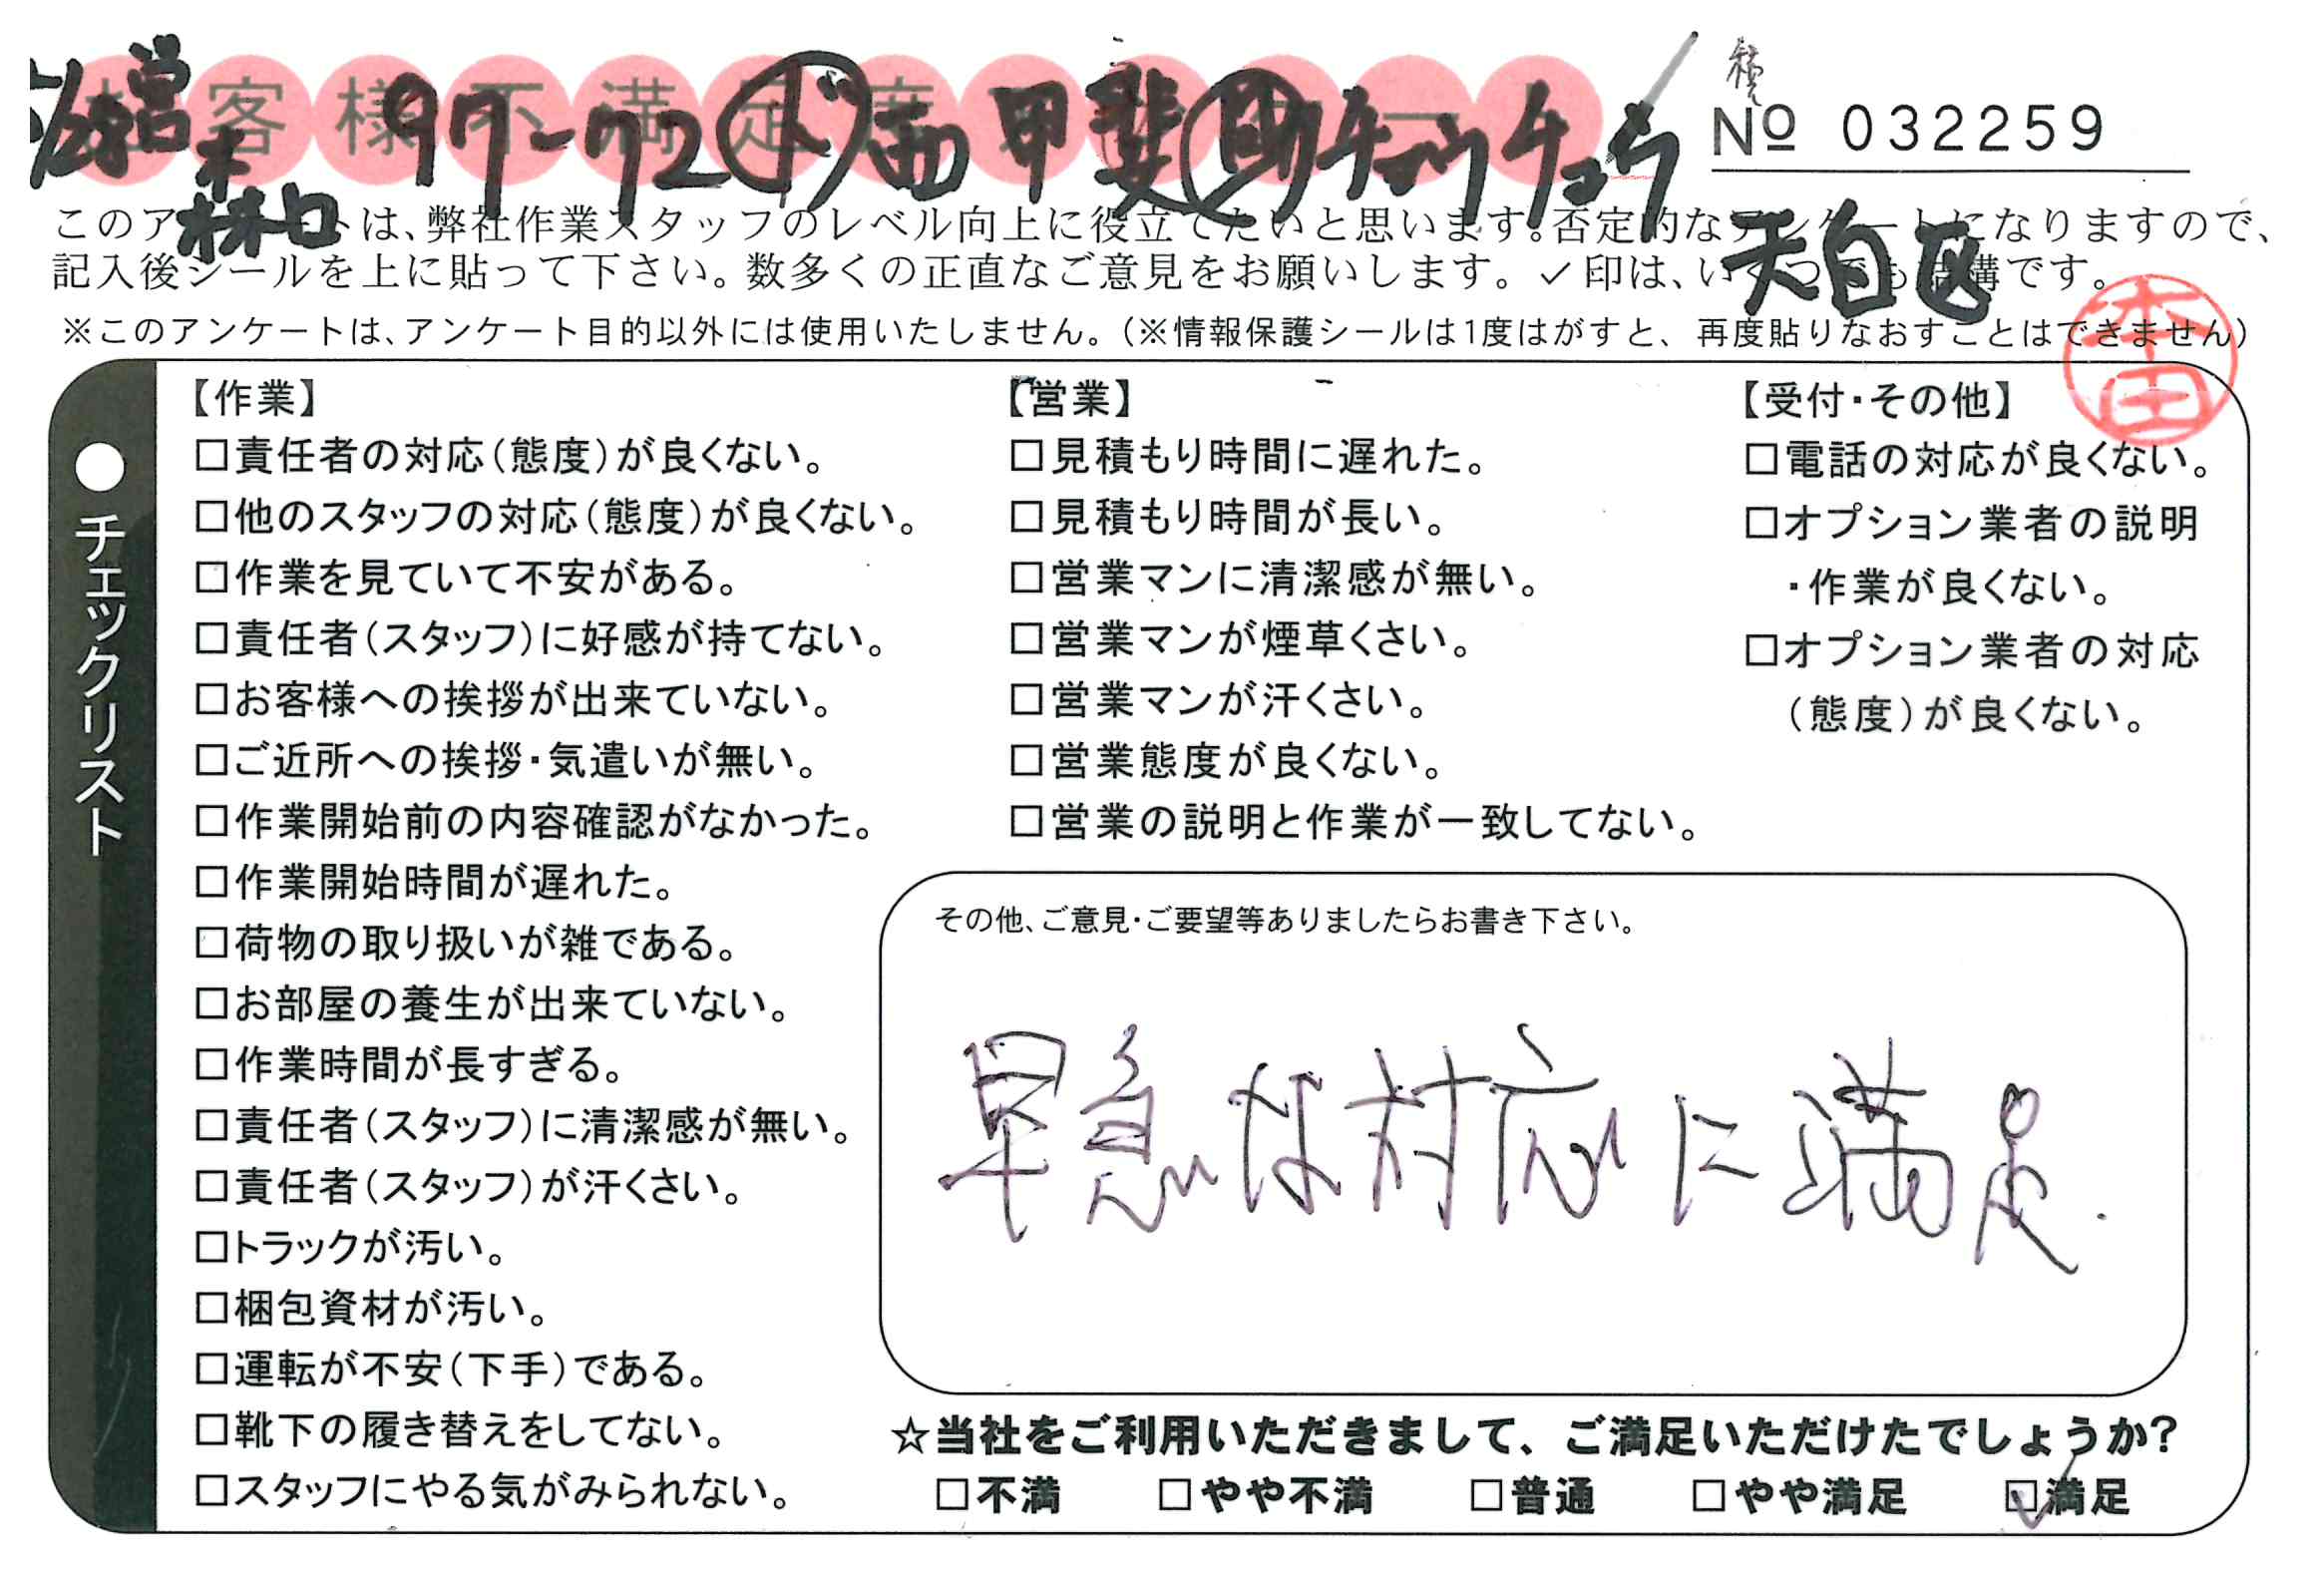 お客様不満足度
営 木 97-72 ド 西 甲斐 助 チェウ チョウ
林口
天白区
№ 032259
このアンケートは、弊社作業スタッフのレベル向上に役立てたいと思います。否定的なアンケートになりますので、
記入後シールを上に貼って下さい。数多くの正直なご意見をお願いします。✓印は、いくつでも結構です。
※このアンケートは、アンケート目的以外には使用いたしません。(※情報保護シールは1度はがすと、再度貼りなおすことはできません)
本田
●チェックリスト
【作業】
□責任者の対応(態度)が良くない。
□他のスタッフの対応(態度)が良くない。
□作業を見ていて不安がある。
□責任者(スタッフ)に好感が持てない。
□お客様への挨拶が出来ていない。
□ご近所への挨拶・気遣いが無い。
□作業開始前の内容確認がなかった。
□作業開始時間が遅れた。
□荷物の取り扱いが雑である。
□お部屋の養生が出来ていない。
□作業時間が長すぎる。
□責任者(スタッフ)に清潔感が無い。
□責任者(スタッフ)が汗くさい。
□トラックが汚い。
□梱包資材が汚い。
□運転が不安(下手)である。
□靴下の履き替えをしてない。
□スタッフにやる気がみられない。
【営業】
□見積もり時間に遅れた。
□見積もり時間が長い。
□営業マンに清潔感が無い。
□営業マンが煙草くさい。
□営業マンが汗くさい。
□営業態度が良くない。
□営業の説明と作業が一致してない。
【受付・その他】
□電話の対応が良くない。
□オプション業者の説明
・作業が良くない。
□オプション業者の対応
(態度)が良くない。
その他、ご意見・ご要望等ありましたらお書き下さい。
早急な対応に満足.
☆当社をご利用いただきまして、ご満足いただけたでしょうか?
□不満 □やや不満 □普通 □やや満足 ☑満足